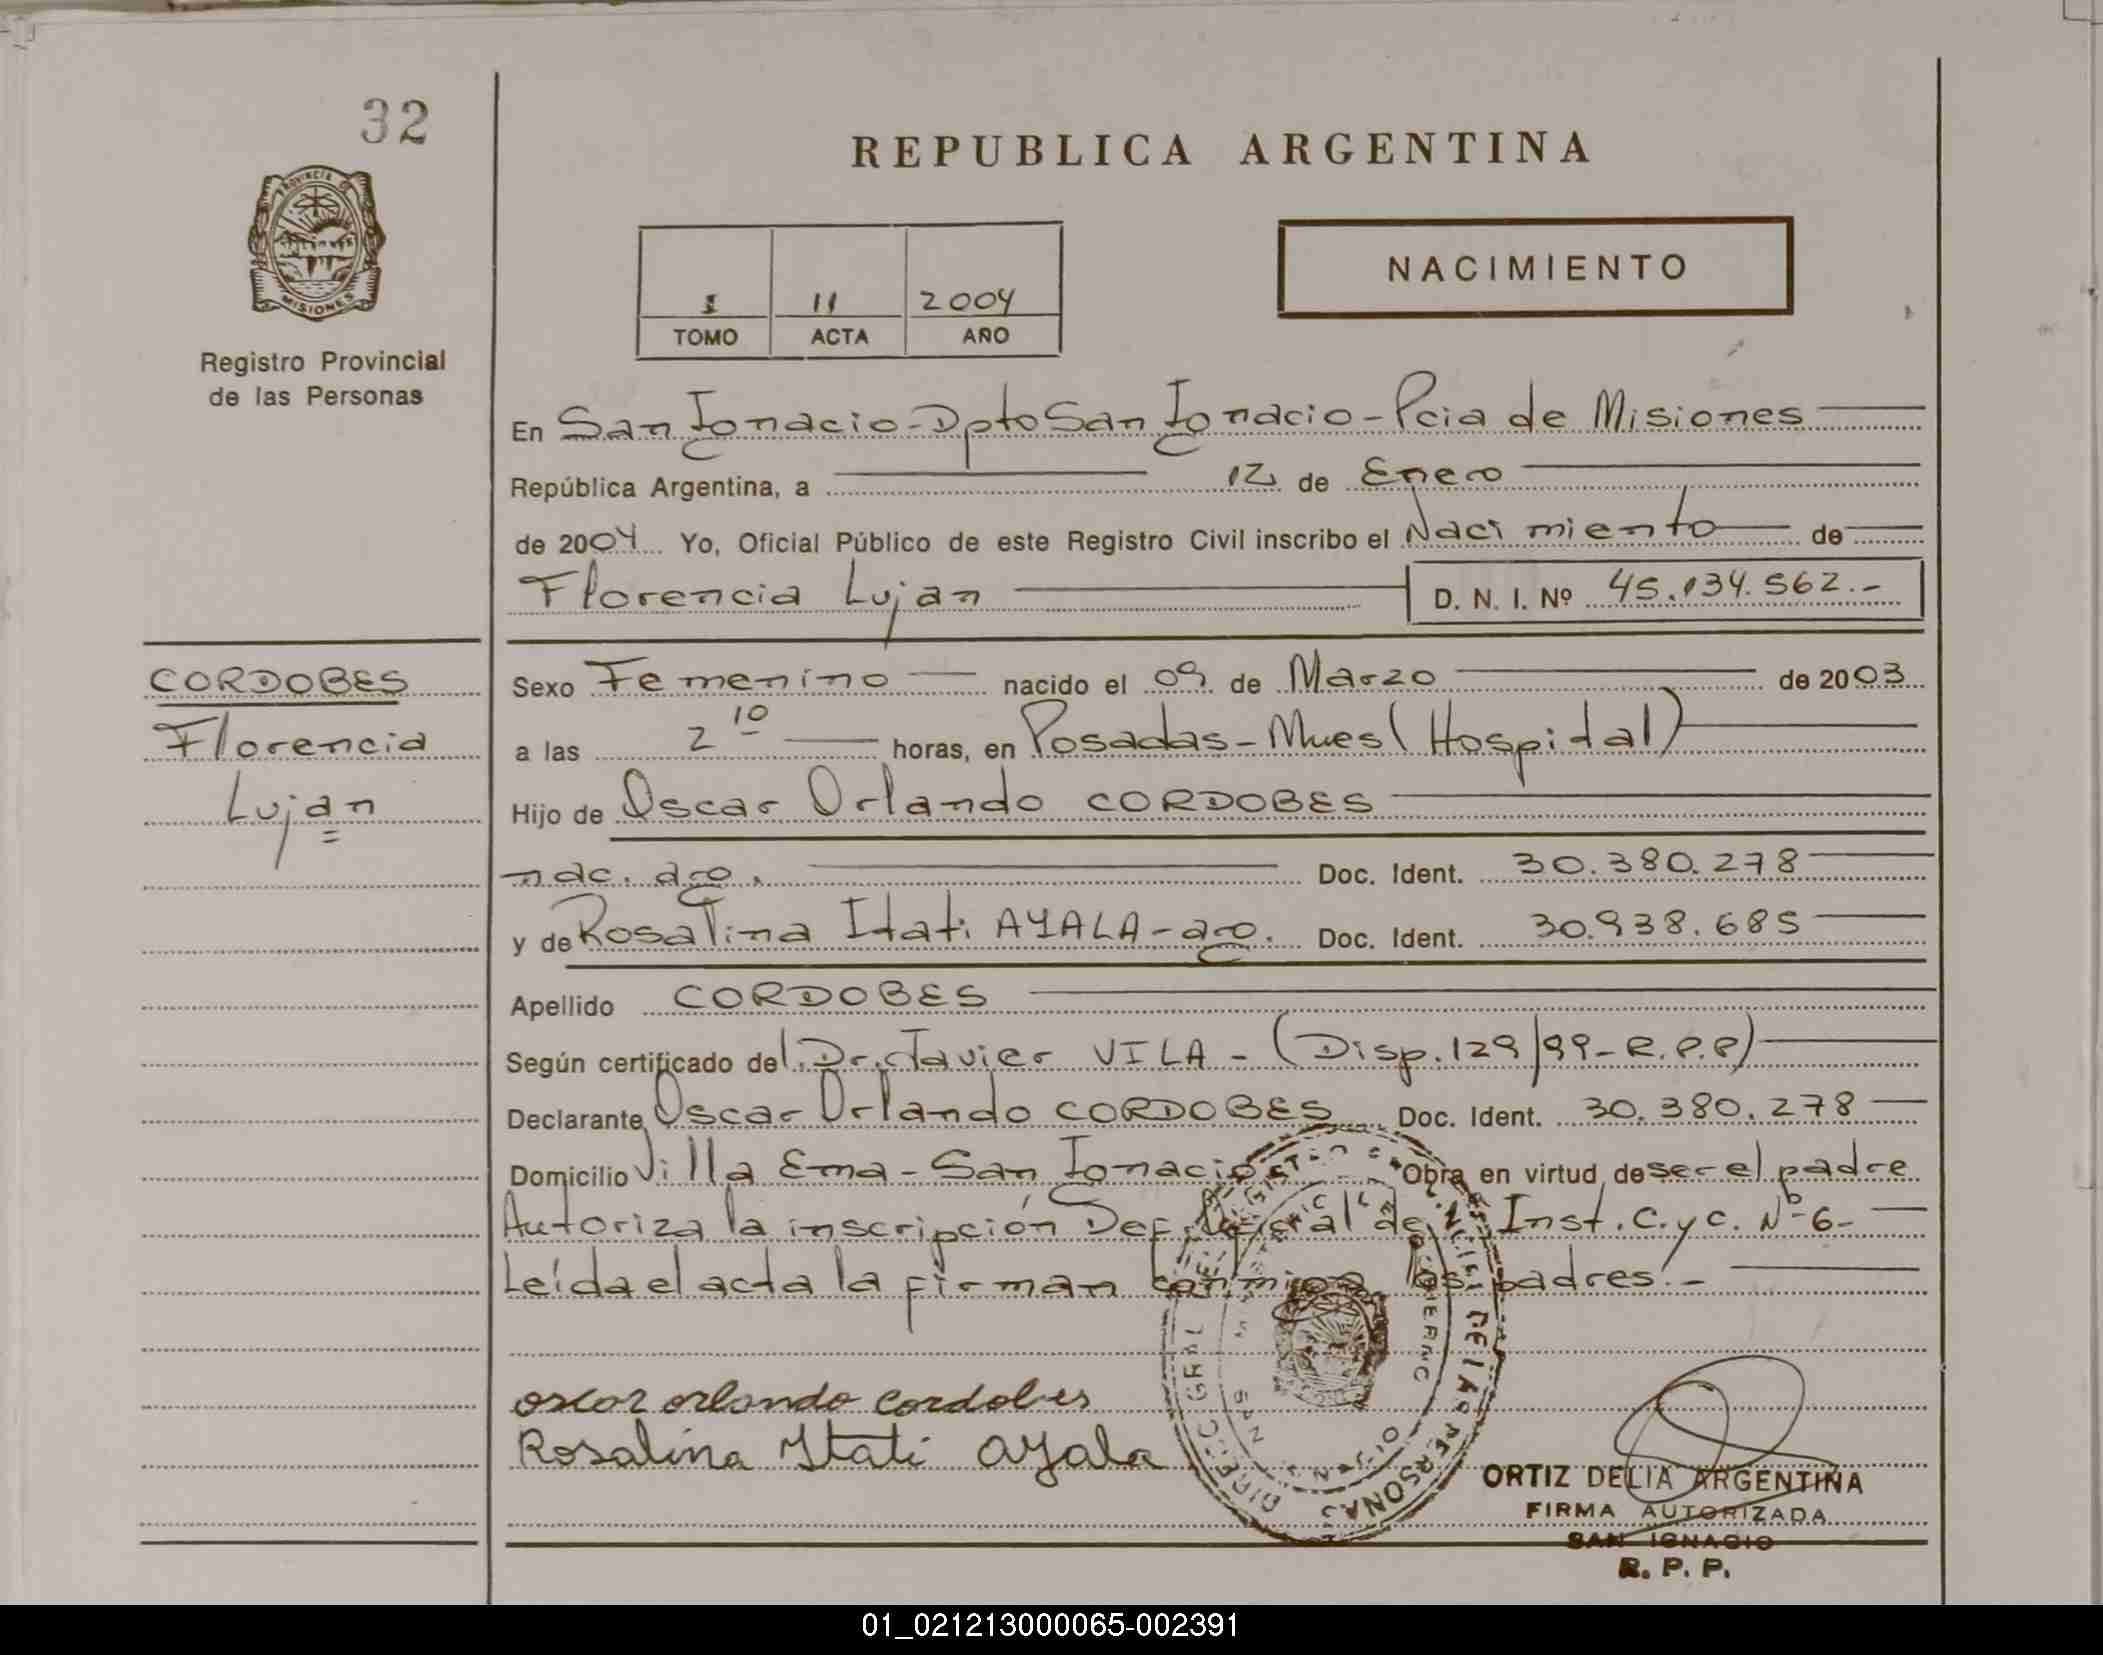 32
REPUBLICA ARGENTINA
PROVINCIA DE
MISIONES
Registro Provincial
de las Personas
1 11 2004
TOMO ACTA AÑO
NACIMIENTO
En San Ignacio - Dpto San Ignacio - Pcia de Misiones
República Argentina, a 12 de Enero
de 2004 Yo, Oficial Público de este Registro Civil inscribo el Nacimiento de
Florencia Lujan D. N. I. Nº 45.134.562.-
CORDOBES
Florencia
Lujan
Sexo Femenino nacido el 09 de Marzo de 2003
a las 2 10 horas, en Posadas - Mnes (Hospidal)
Hijo de Oscar Orlando CORDOBES
nac. arg. Doc. Ident. 30.380.278
y de Rosalina Itati AYALA - arg. Doc. Ident. 30.938.685
Apellido CORDOBES
Según certificado del Dr. Javier VILA - (Disp. 129/99 - R.P.P)
Declarante Oscar Orlando CORDOBES Doc. Ident. 30.380.278
Domicilio Villa Ema - San Ignacio Obra en virtud de ser el padre
Autoriza la inscripción Def. General de Inst. C. y C. Nº 6 -
Leída el acta la firman conmigo los padres. -
oscar orlando cordobes
Rosalina Itati Ayala
ORTIZ DELIA ARGENTINA
FIRMA AUTORIZADA
SAN IGNACIO
R. P. P.
01_021213000065-002391